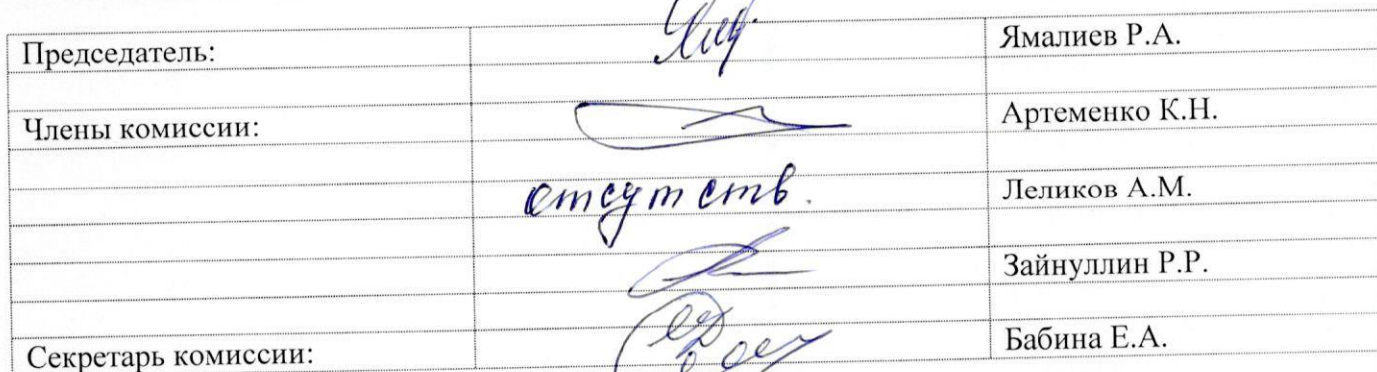 Председатель: Ямалиев Р.А.
Члены комиссии: Артеменко К.Н.
отсутств. Леликов А.М.
Зайнуллин Р.Р.
Секретарь комиссии: Бабина Е.А.